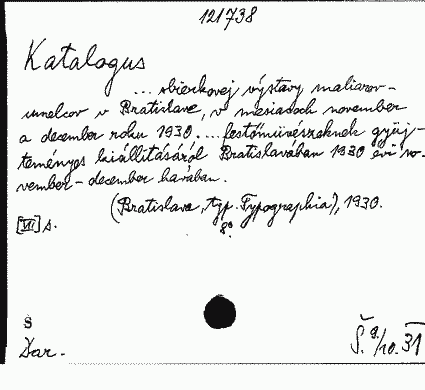 121738
Katalogus
... sbierkovej výstavy maliarov-
umelcov v Bratislave, v mesiacoch november
a december roku 1930. ... festőművészeknek gyüj-
teményes kiállitásáról Bratislavában 1930 évi no-
vember - december havában.
(Bratislava, typ. Typographia), 1930.
[VII] s. 8°.
Š
Dar.
Š. 9/10. 31